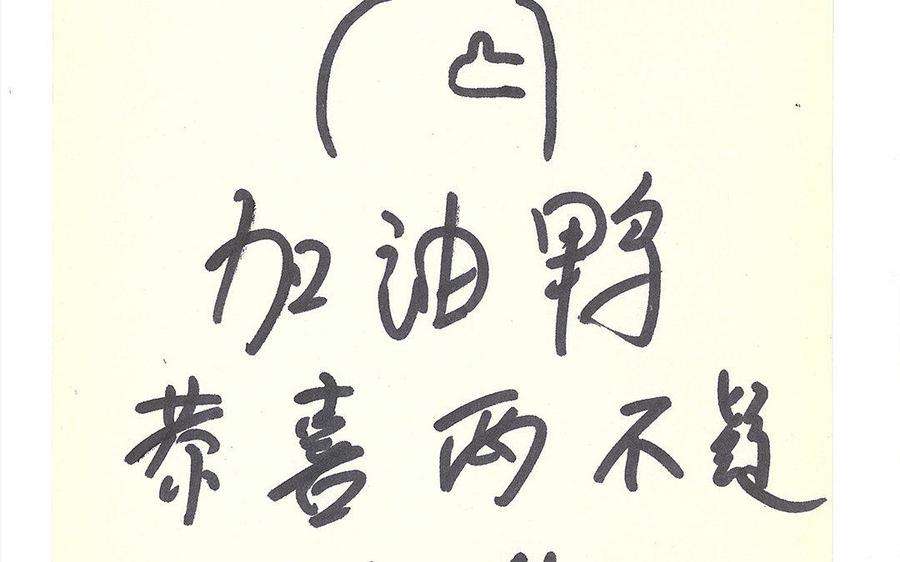 加油鸭
恭喜两不疑